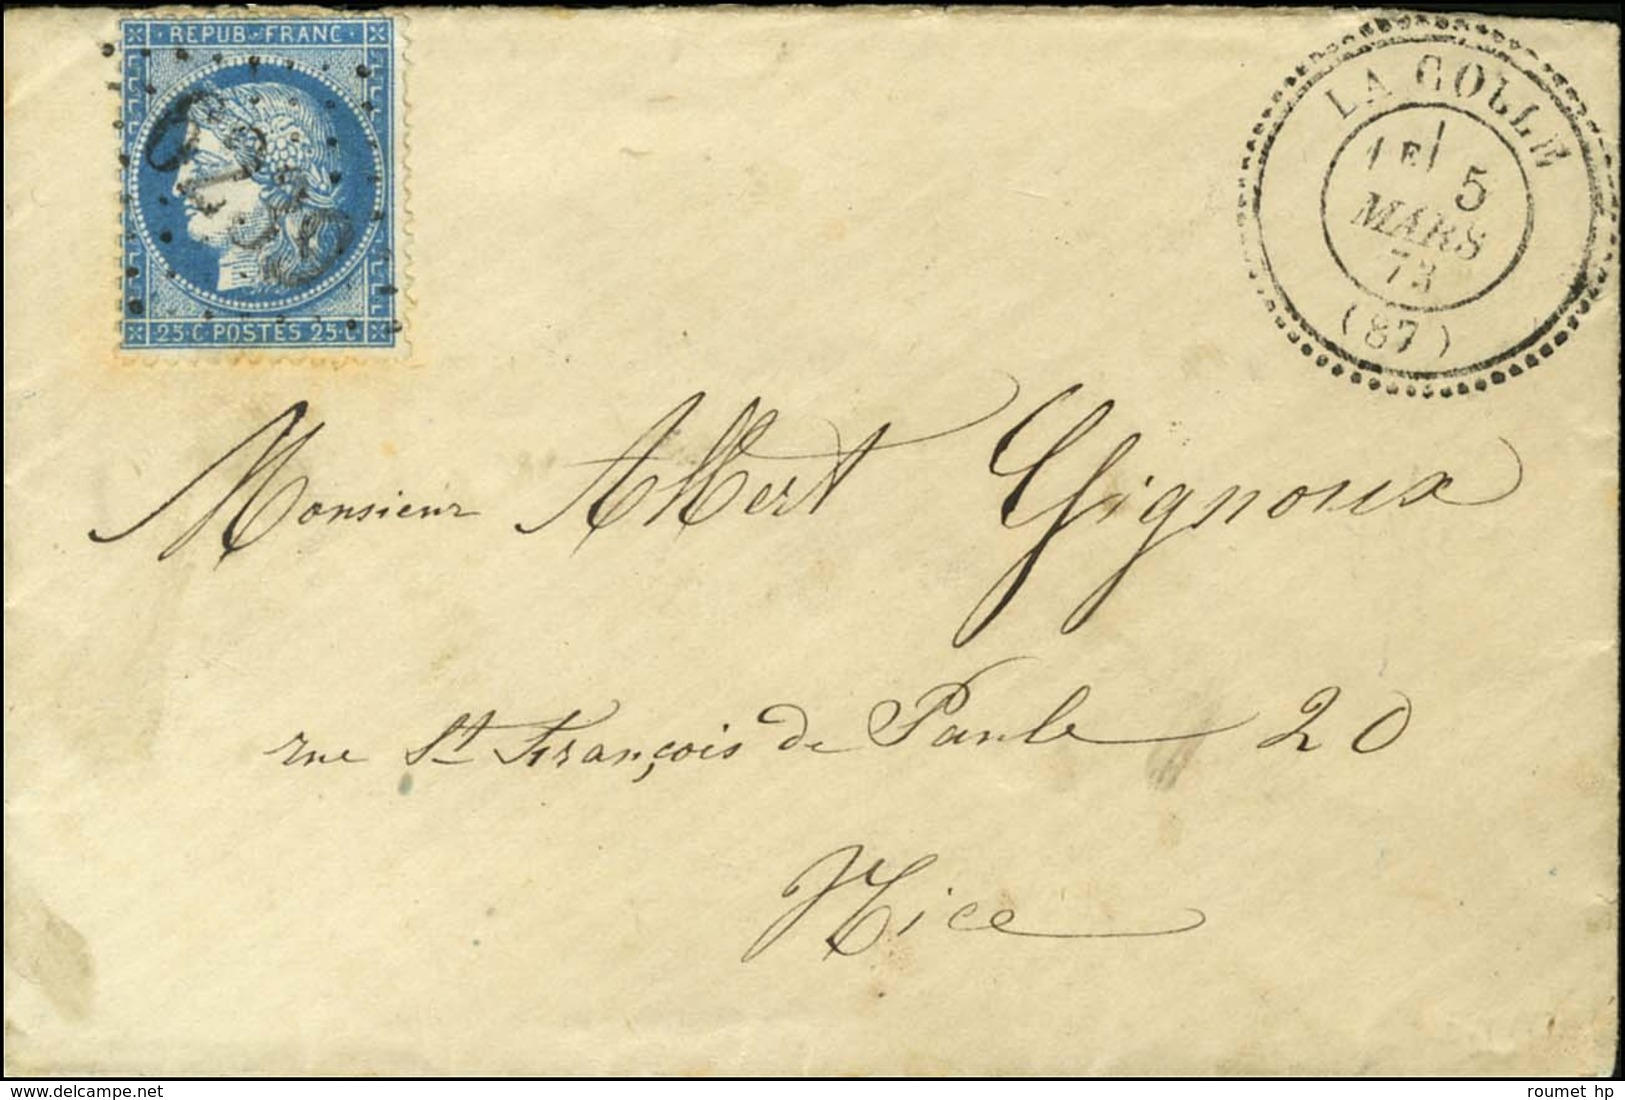 REPUB FRANC
25 C POSTES 25 C
LA COLLE
1E
5
MARS
73
(87)
Monsieur Albert Gignoux
rue St François de Paule 20
Nice
roumet hp